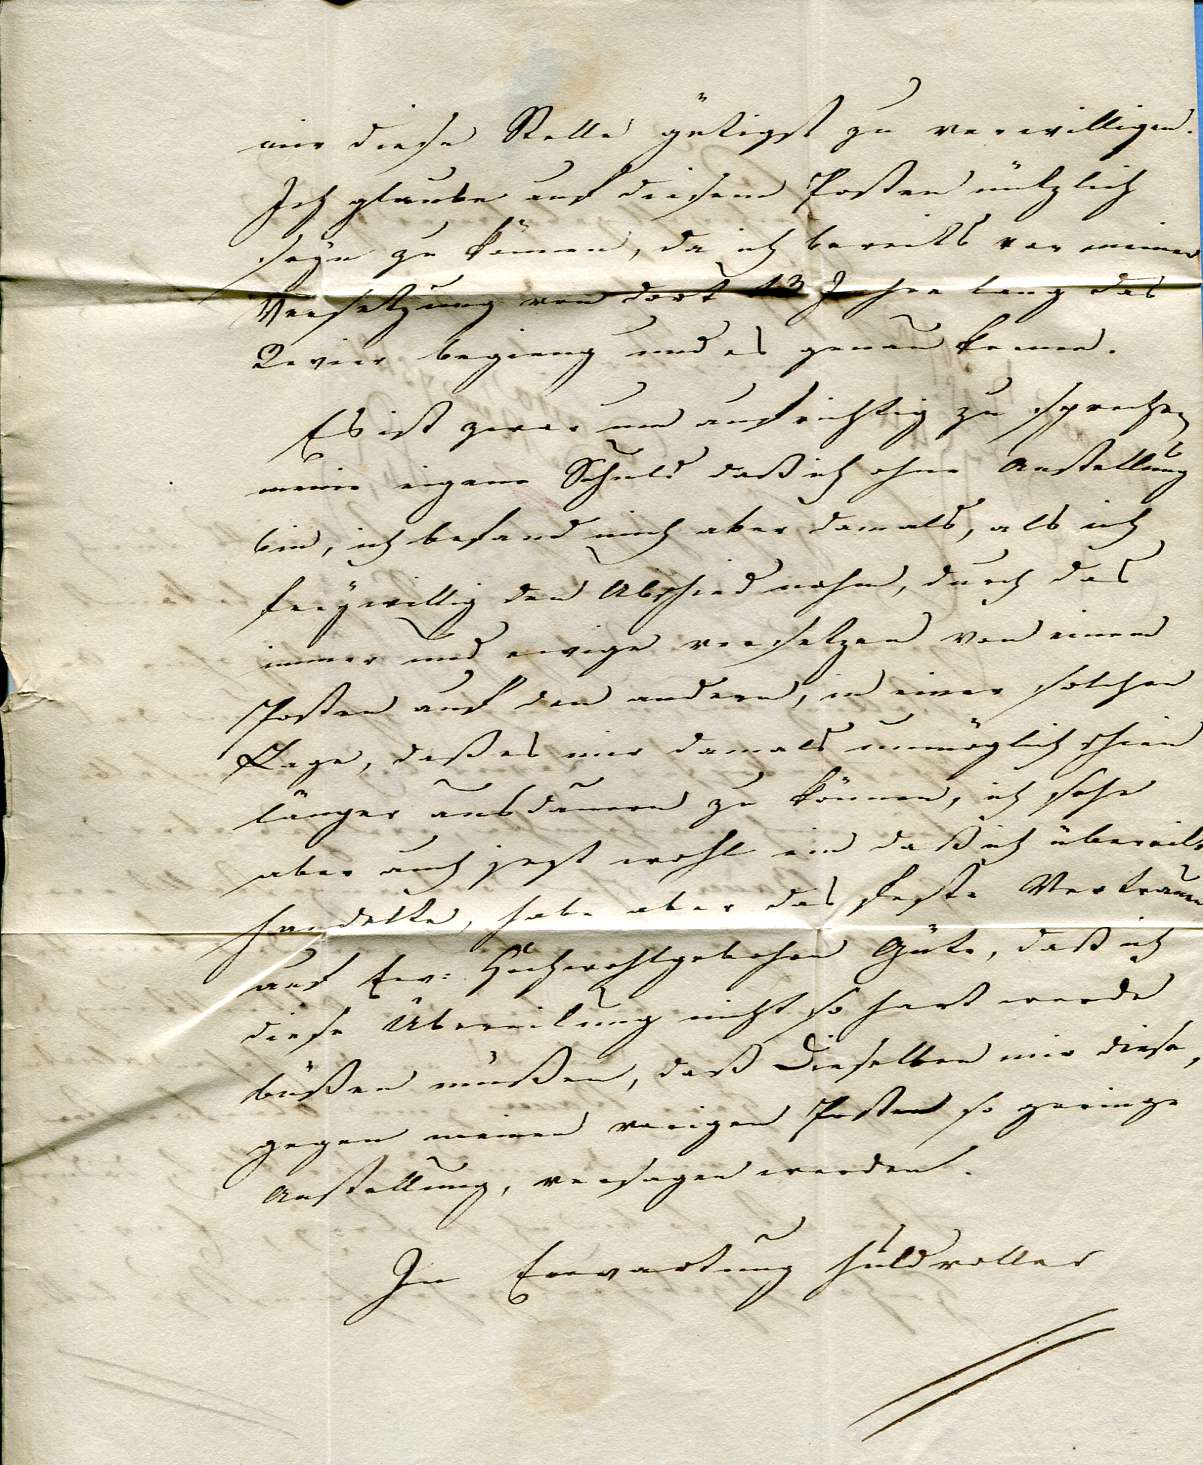 mir diese Stelle gütigst zu verwilligen.
Ich glaube auf diesem Posten nützlich
seyn zu können, da ich bereits vor meiner
Versetzung von dort 13 Jahre lang das
Revier begieng und es genau kenne.
Es ist zwar um aufrichtig zu sprechen
meine eigene Schuld daß ich ohne Anstellung
bin, ich befand mich aber damals, als ich
freywillig den Abschied nahm, durch das
immer und ewige versetzen von einem
Posten auf den andern, in einer solchen
Lage, daß es mir damals unmöglich schien
länger ausdauern zu können, ich sehe
aber auch jezt wohl ein daß ich übereilt
handelte, habe aber das feste Vertrauen
auf Eur: Hochwohlgebohrn Güte, daß ich
diese Übereilung nicht so hart werde
büßen müßen, daß Dieselben mir diese,
gegen meinen vorigen Posten so geringe
Anstellung, versagen werden.
In Erwartung huldvoller